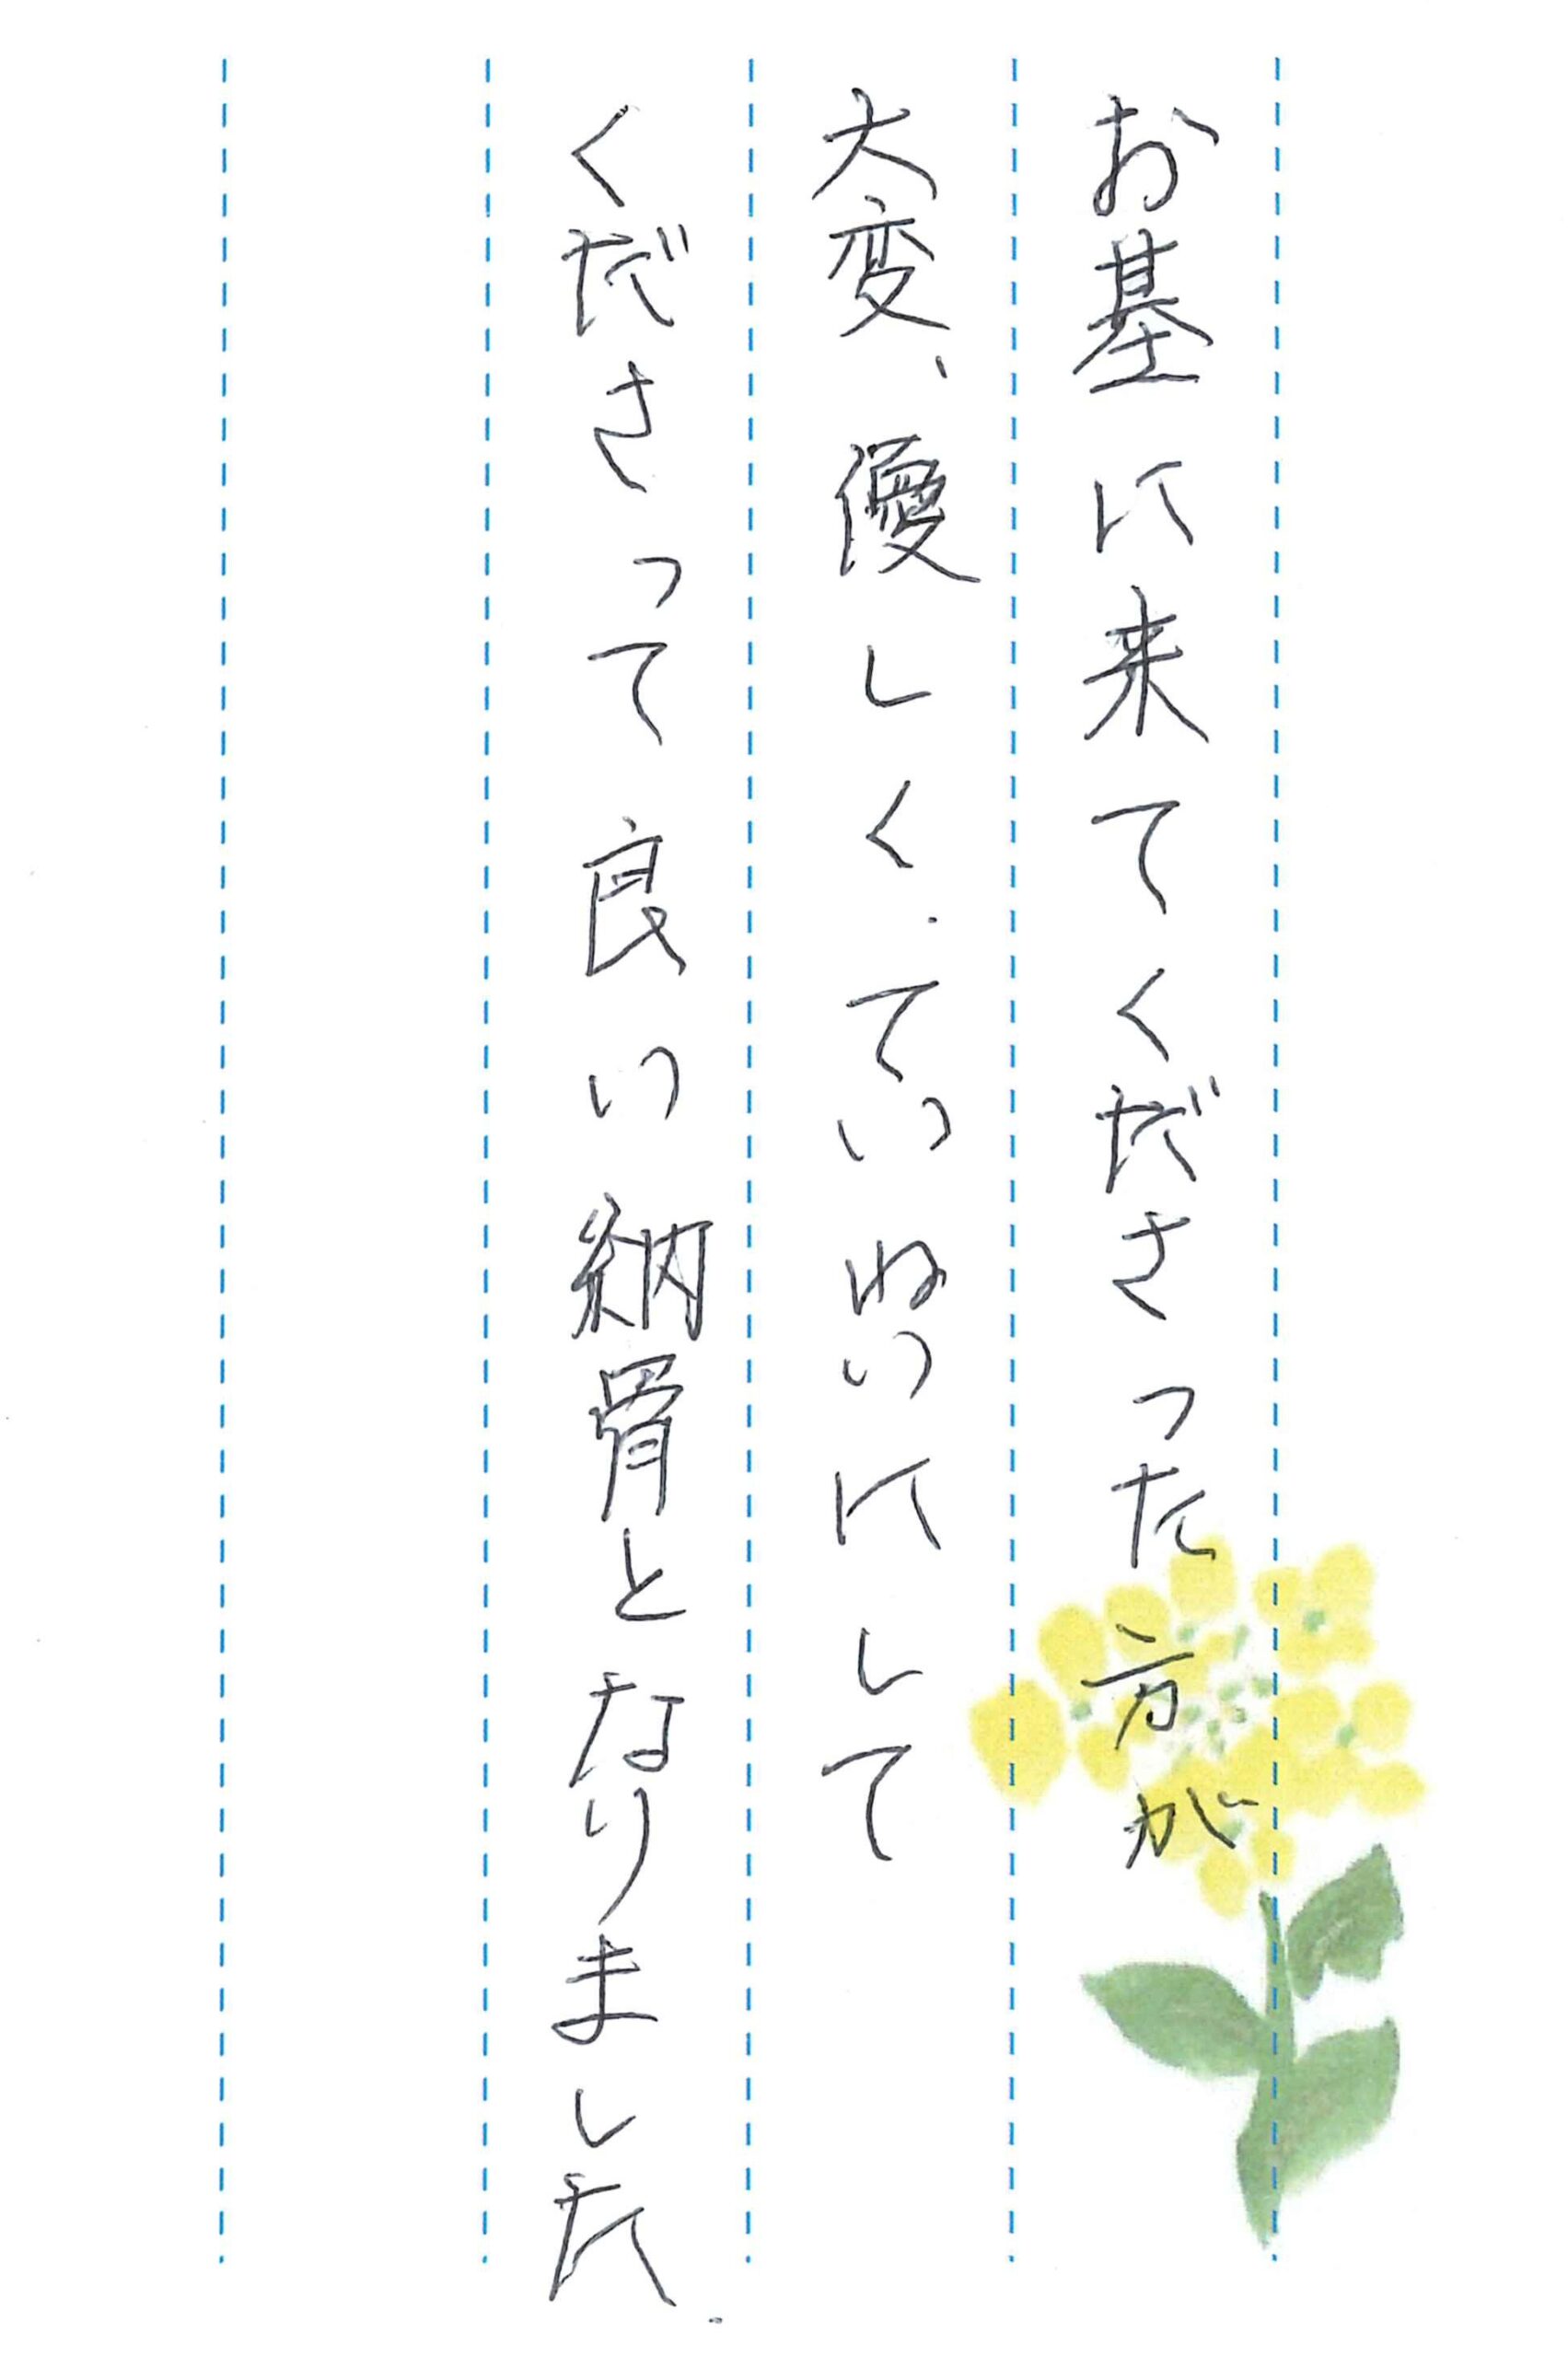 お基に来てくださった方が
大変、優しく.ていねいにして
くださって良い納骨となりました.